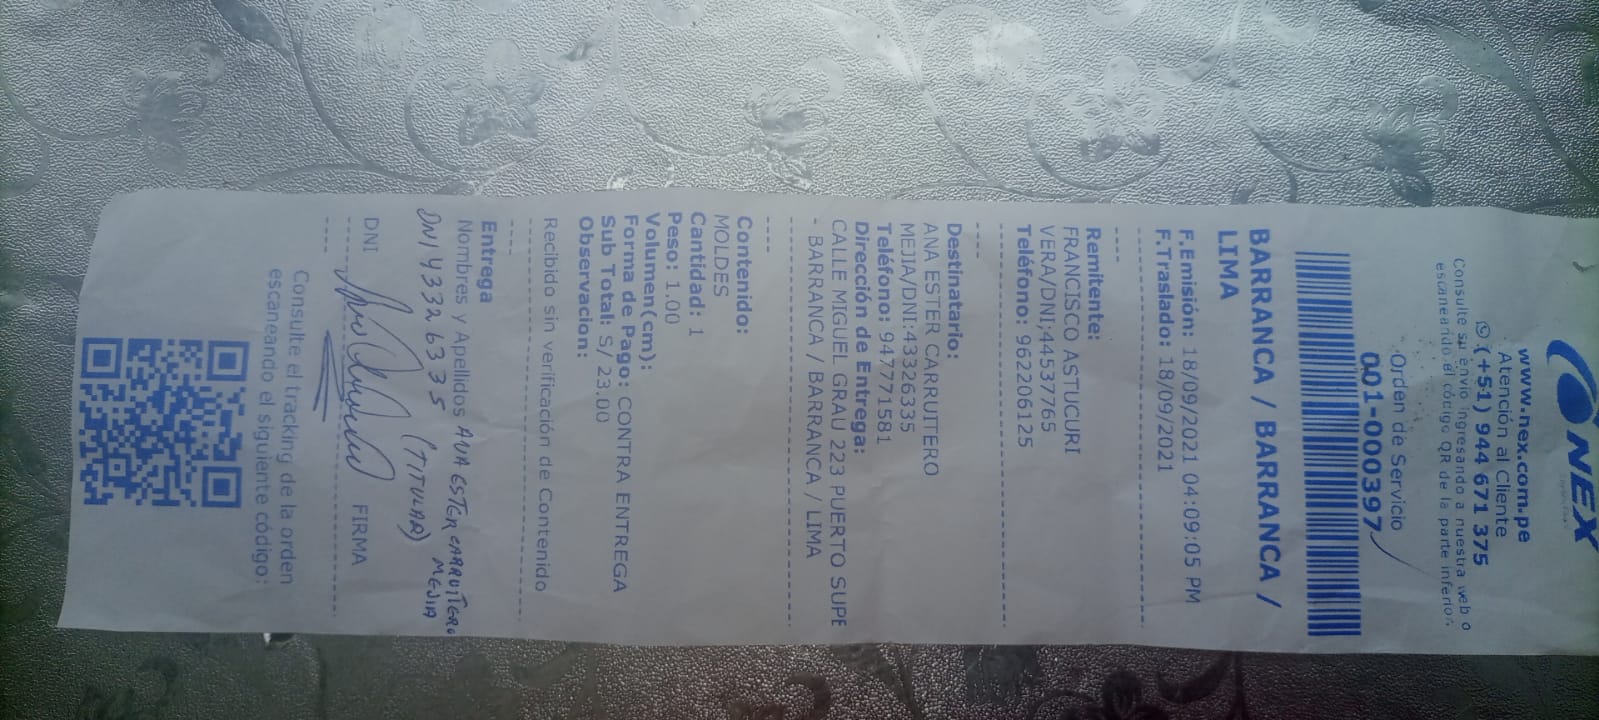 NEX
www.nex.com.pe
Atención al Cliente
(+51) 944 671 375
Consulte su envio ingresando a nuestra web o
escaneando el código QR de la parte inferior.
Orden de Servicio
001-000397
BARRANCA / BARRANCA /
LIMA
F.Emisión: 18/09/2021 04:09:05 PM
F.Traslado: 18/09/2021
Remitente:
FRANCISCO ASTUCURI
VERA/DNI;44537765
Teléfono: 962206125
Destinatario:
ANA ESTER CARRUITERO
MEJIA/DNI:43326335
Teléfono: 947771581
Dirección de Entrega:
CALLE MIGUEL GRAU 223 PUERTO SUPE
- BARRANCA / BARRANCA / LIMA
Contenido:
MOLDES
Cantidad: 1
Peso: 1.00
Volumen(cm):
Forma de Pago: CONTRA ENTREGA
Sub Total: S/ 23.00
Observacion:
Recibido sin verificación de Contenido
Entrega
Nombres y Apellidos ANA ESTER CARRUITERO
MEJIA
DNI 43326335 (TITULAR)
DNI FIRMA
Consulte el tracking de la orden
escaneando el siguiente código: